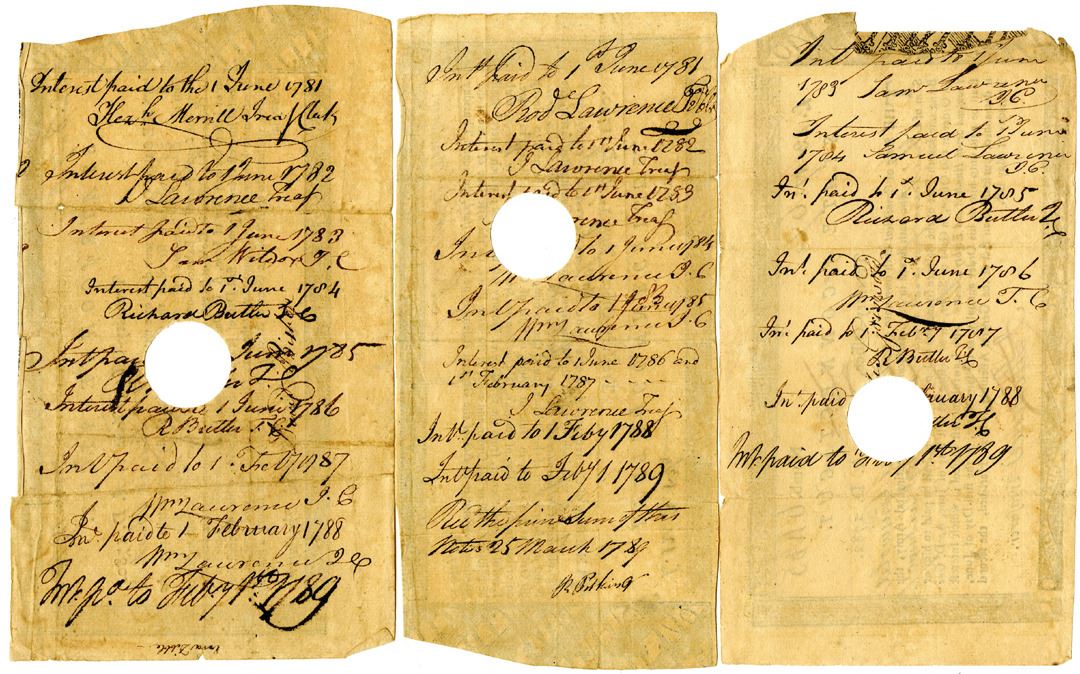 Interest paid to the 1 June 1781
Hezh. Merrill Treas Clerk
Interest paid to 1 June 1782
J Lawrence Treas
Interest paid to 1 June 1783
Sam Wildor T. C
Interest paid to 1st. June 1784
Richard Butler T. C
Int pai June 1785
Interest 1 June 1786
R Butler T. C
Int paid to 1. Feby 1787
Wm Lawrence T. C
Int. paid to 1 February 1788
Wm Lawrence T C
Int. pd. to Feby 1st 1789
Int paid to 1st June 1781
Rod Lawrence
Interest paid to 1st June 1782
J Lawrence Treas
Interest paid to 1st June 1783
rence Treas
In to 1 June 1784
Wm Lawrence T. C
Int paid to 1 1785
Wm Lawrence T. C
Interest paid to 1 June 1786 and
1st February 1787 - - - -
J Lawrence Treas
Int. paid to 1 Feby 1788
Int paid to Feby 1 1789
Recd the prin Sum of this
Note 25 March 1789
Int paid to 1 June
1783 Sam Lawrence
T. C.
Interest paid to 1 June
1784 Samuel Lawrence
T. C.
Int. paid to 1st. June 1785
Richard Butler T C
Int. paid to 1st. June 1786
Wm Lawrence T. C
Int. paid to 1 Feby 1787
R Butler T C
Int. paid uary 1788
tler T C
Int. paid to 1st 1789